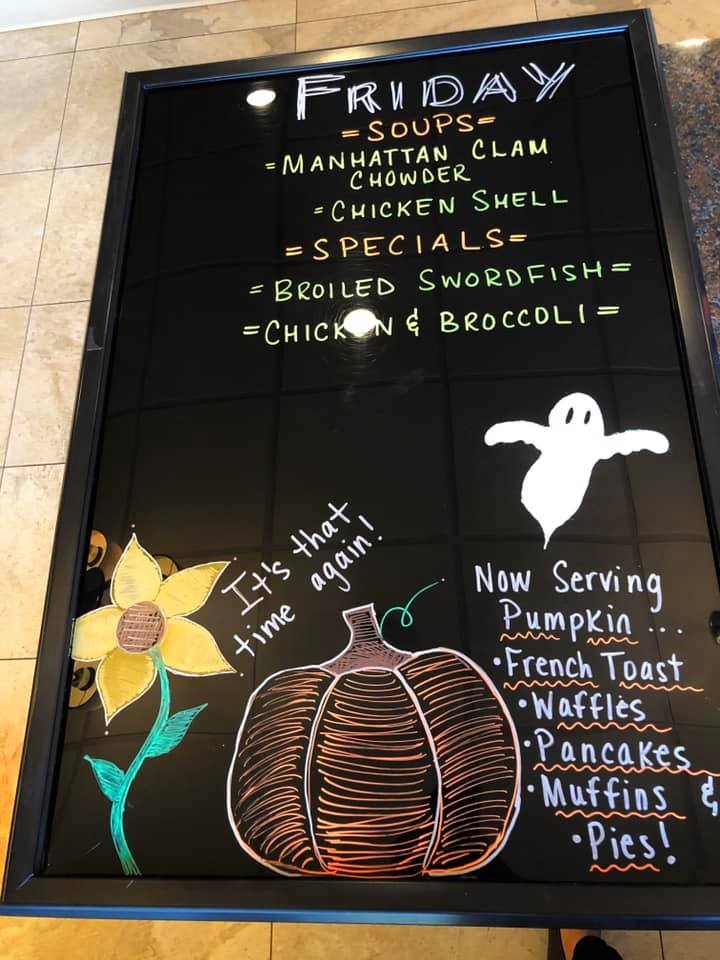 FRIDAY
=SOUPS=
=MANHATTAN CLAM
CHOWDER
=CHICKEN SHELL
=SPECIALS=
=BROILED SWORDFISH=
=CHICKEN & BROCCOLI=
It's that
time again!
Now Serving
Pumpkin...
•French Toast
•Waffles
•Pancakes
•Muffins &
•Pies!